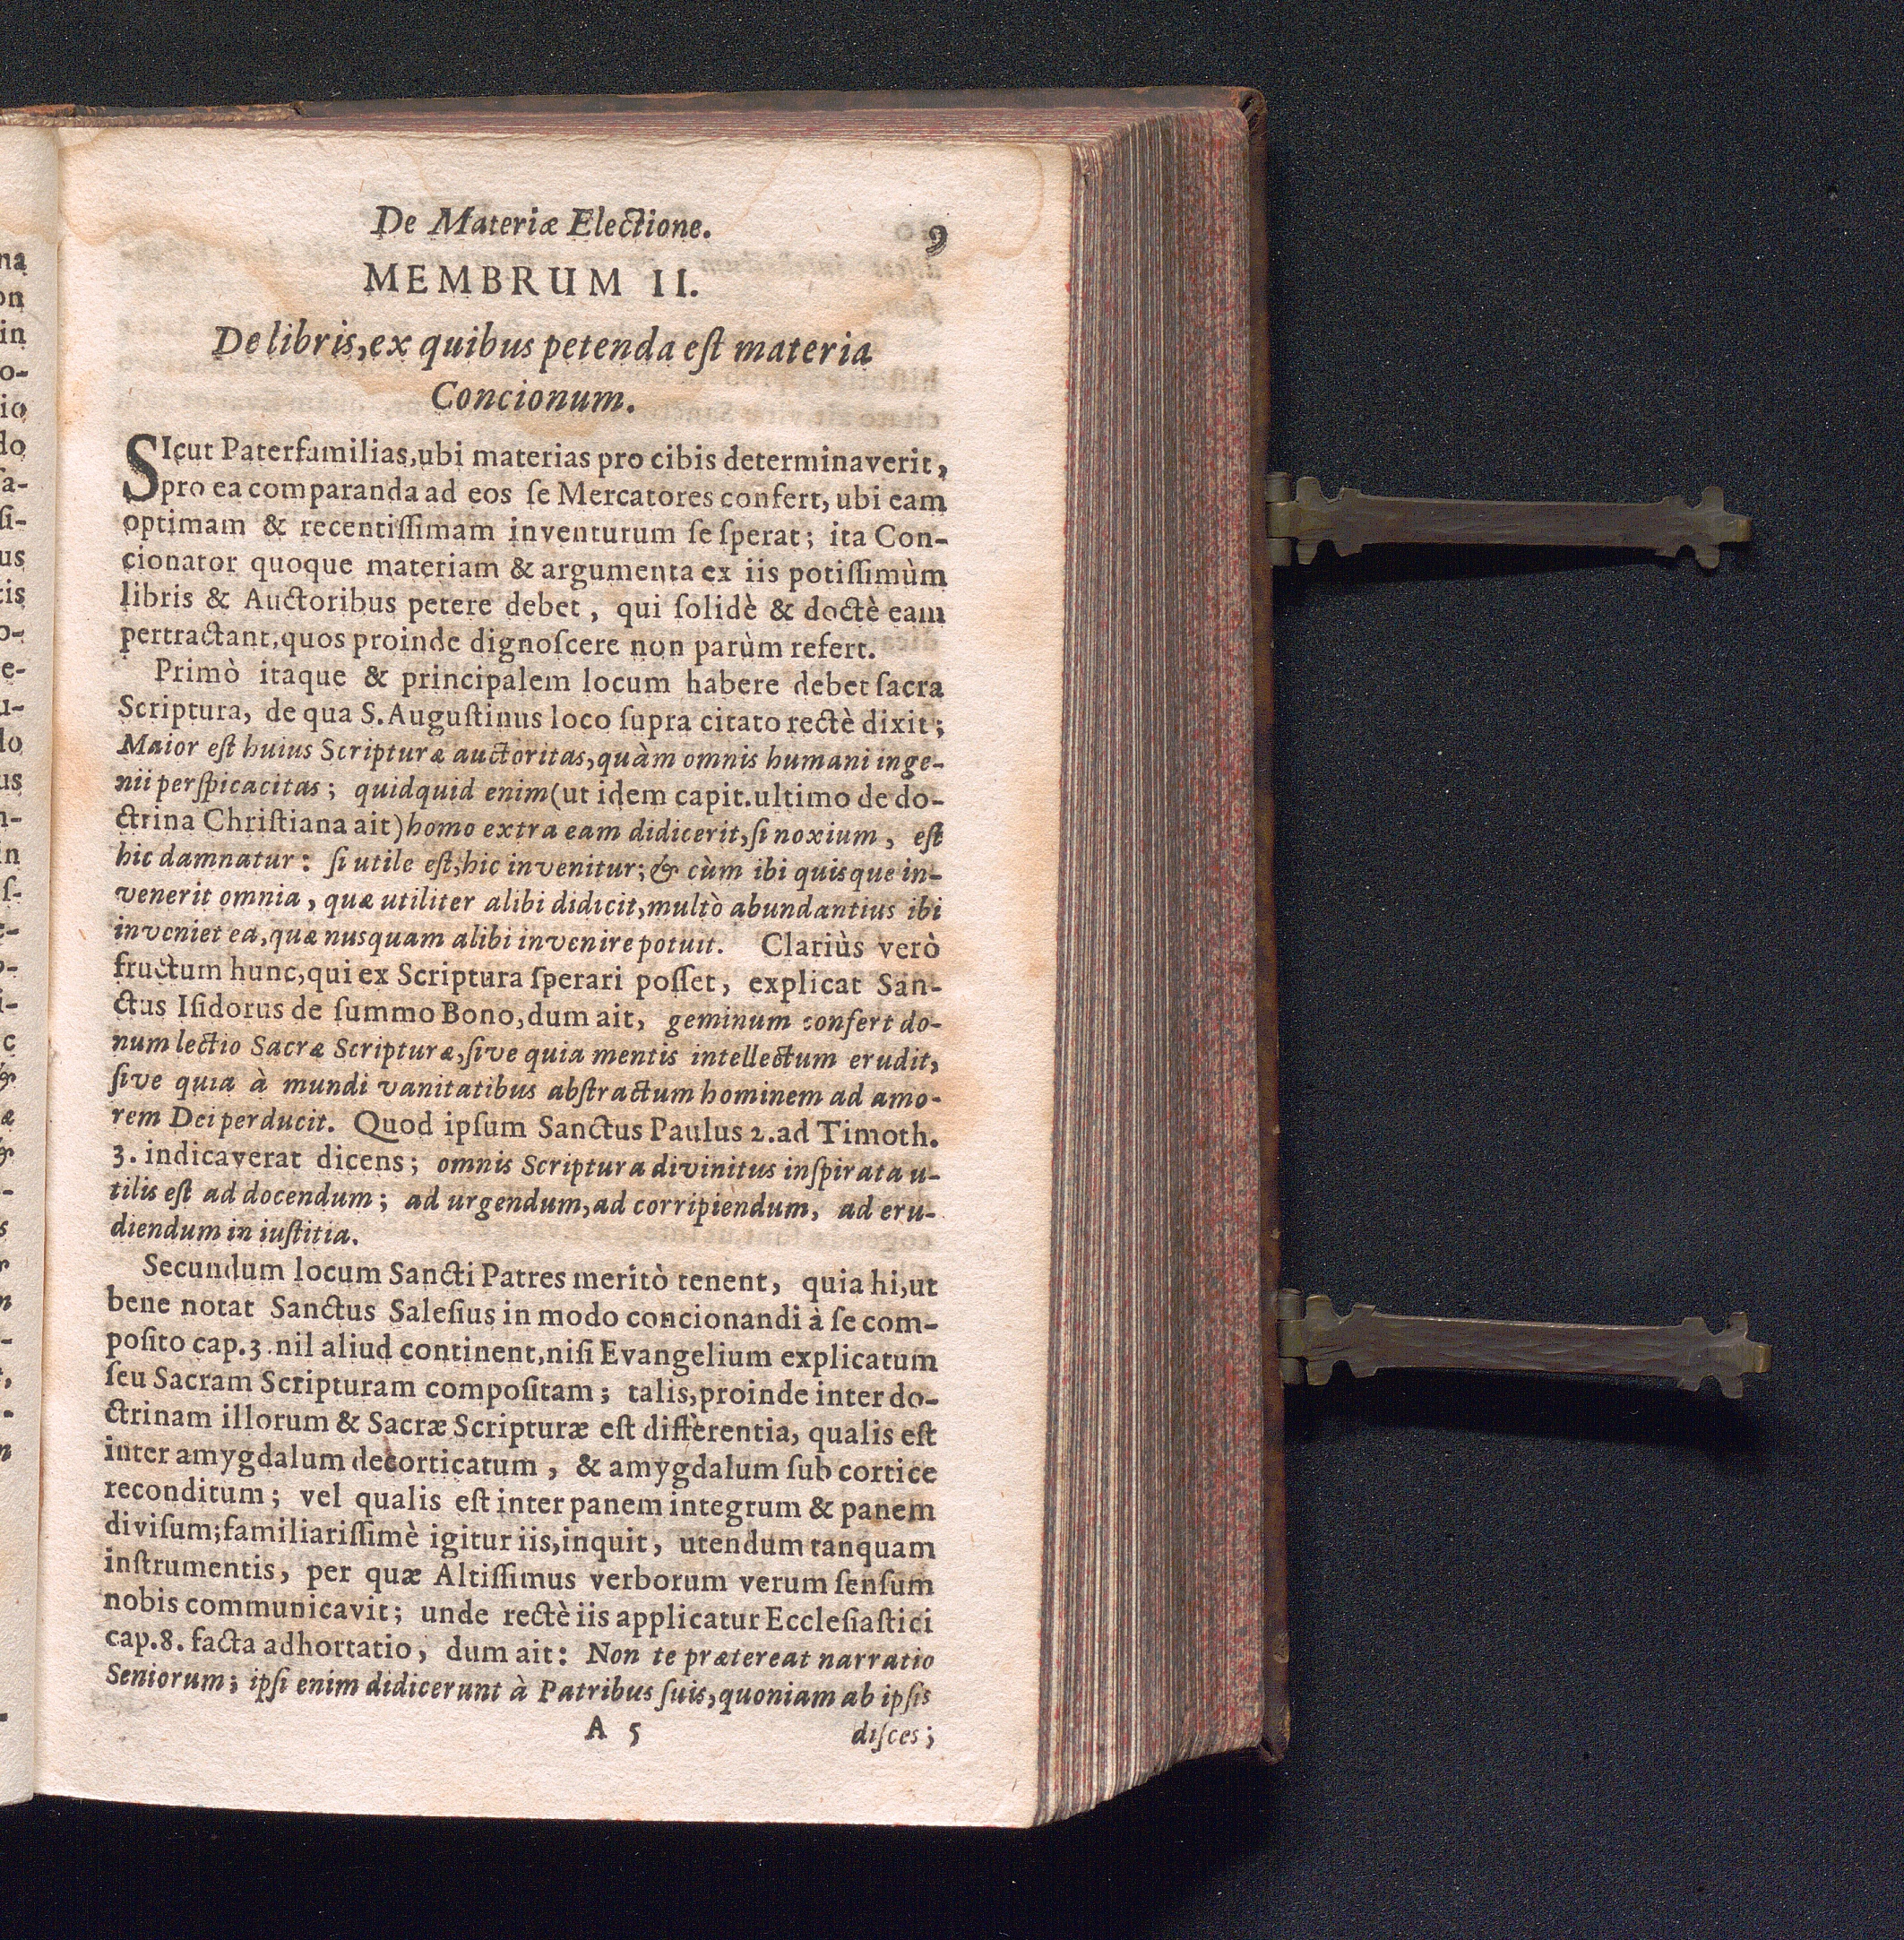 De Materiæ Electione. 9
MEMBRUM II.
De libris, ex quibus petenda eſt materia
Concionum.
SIcut Paterfamilias, ubi materias pro cibis determinaverit,
pro ea comparanda ad eos ſe Mercatores confert, ubi eam
optimam & recentiſſimam inventurum ſe ſperat; ita Con-
cionator quoque materiam & argumenta ex iis potiſſimùm
libris & Auctoribus petere debet, qui ſolidè & doctè eam
pertractant, quos proinde dignoſcere non parùm refert.
Primò itaque & principalem locum habere debet ſacra
Scriptura, de qua S. Auguſtinus loco ſupra citato rectè dixit;
Maior eſt huius Scripturæ auctoritas, quàm omnis humani inge-
nii perſpicacitas; quidquid enim (ut idem capit. ultimo de do-
ctrina Chriſtiana ait) homo extra eam didicerit, ſi noxium, eſt
hic damnatur: ſi utile eſt, hic invenitur; & cùm ibi quisque in-
venerit omnia, quæ utiliter alibi didicit, multò abundantius ibi
inveniet ea, quæ nusquam alibi invenire potuit. Clariùs verò
fructum hunc, qui ex Scriptura ſperari poſſet, explicat San-
ctus Iſidorus de ſummo Bono, dum ait, geminum confert do-
num lectio Sacræ Scripturæ, ſive quia mentis intellectum erudit,
ſive quia à mundi vanitatibus abſtractum hominem ad amo-
rem Dei perducit. Quod ipſum Sanctus Paulus 2. ad Timoth.
3. indicaverat dicens; omnis Scriptura divinitus inſpirata u-
tilis eſt ad docendum; ad urgendum, ad corripiendum, ad eru-
diendum in iuſtitia.
Secundum locum Sancti Patres meritò tenent, quia hi, ut
bene notat Sanctus Saleſius in modo concionandi à ſe com-
poſito cap. 3. nil aliud continent, niſi Evangelium explicatum
ſeu Sacram Scripturam compoſitam; talis, proinde inter do-
ctrinam illorum & Sacræ Scripturæ eſt differentia, qualis eſt
inter amygdalum decorticatum, & amygdalum ſub cortice
reconditum; vel qualis eſt inter panem integrum & panem
diviſum; familiariſſimè igitur iis, inquit, utendum tanquam
inſtrumentis, per quæ Altiſſimus verborum verum ſenſum
nobis communicavit; unde rectè iis applicatur Eccleſiaſtici
cap. 8. facta adhortatio, dum ait: Non te prætereat narratio
Seniorum; ipſi enim didicerunt à Patribus ſuis, quoniam ab ipſis
A 5 diſces;